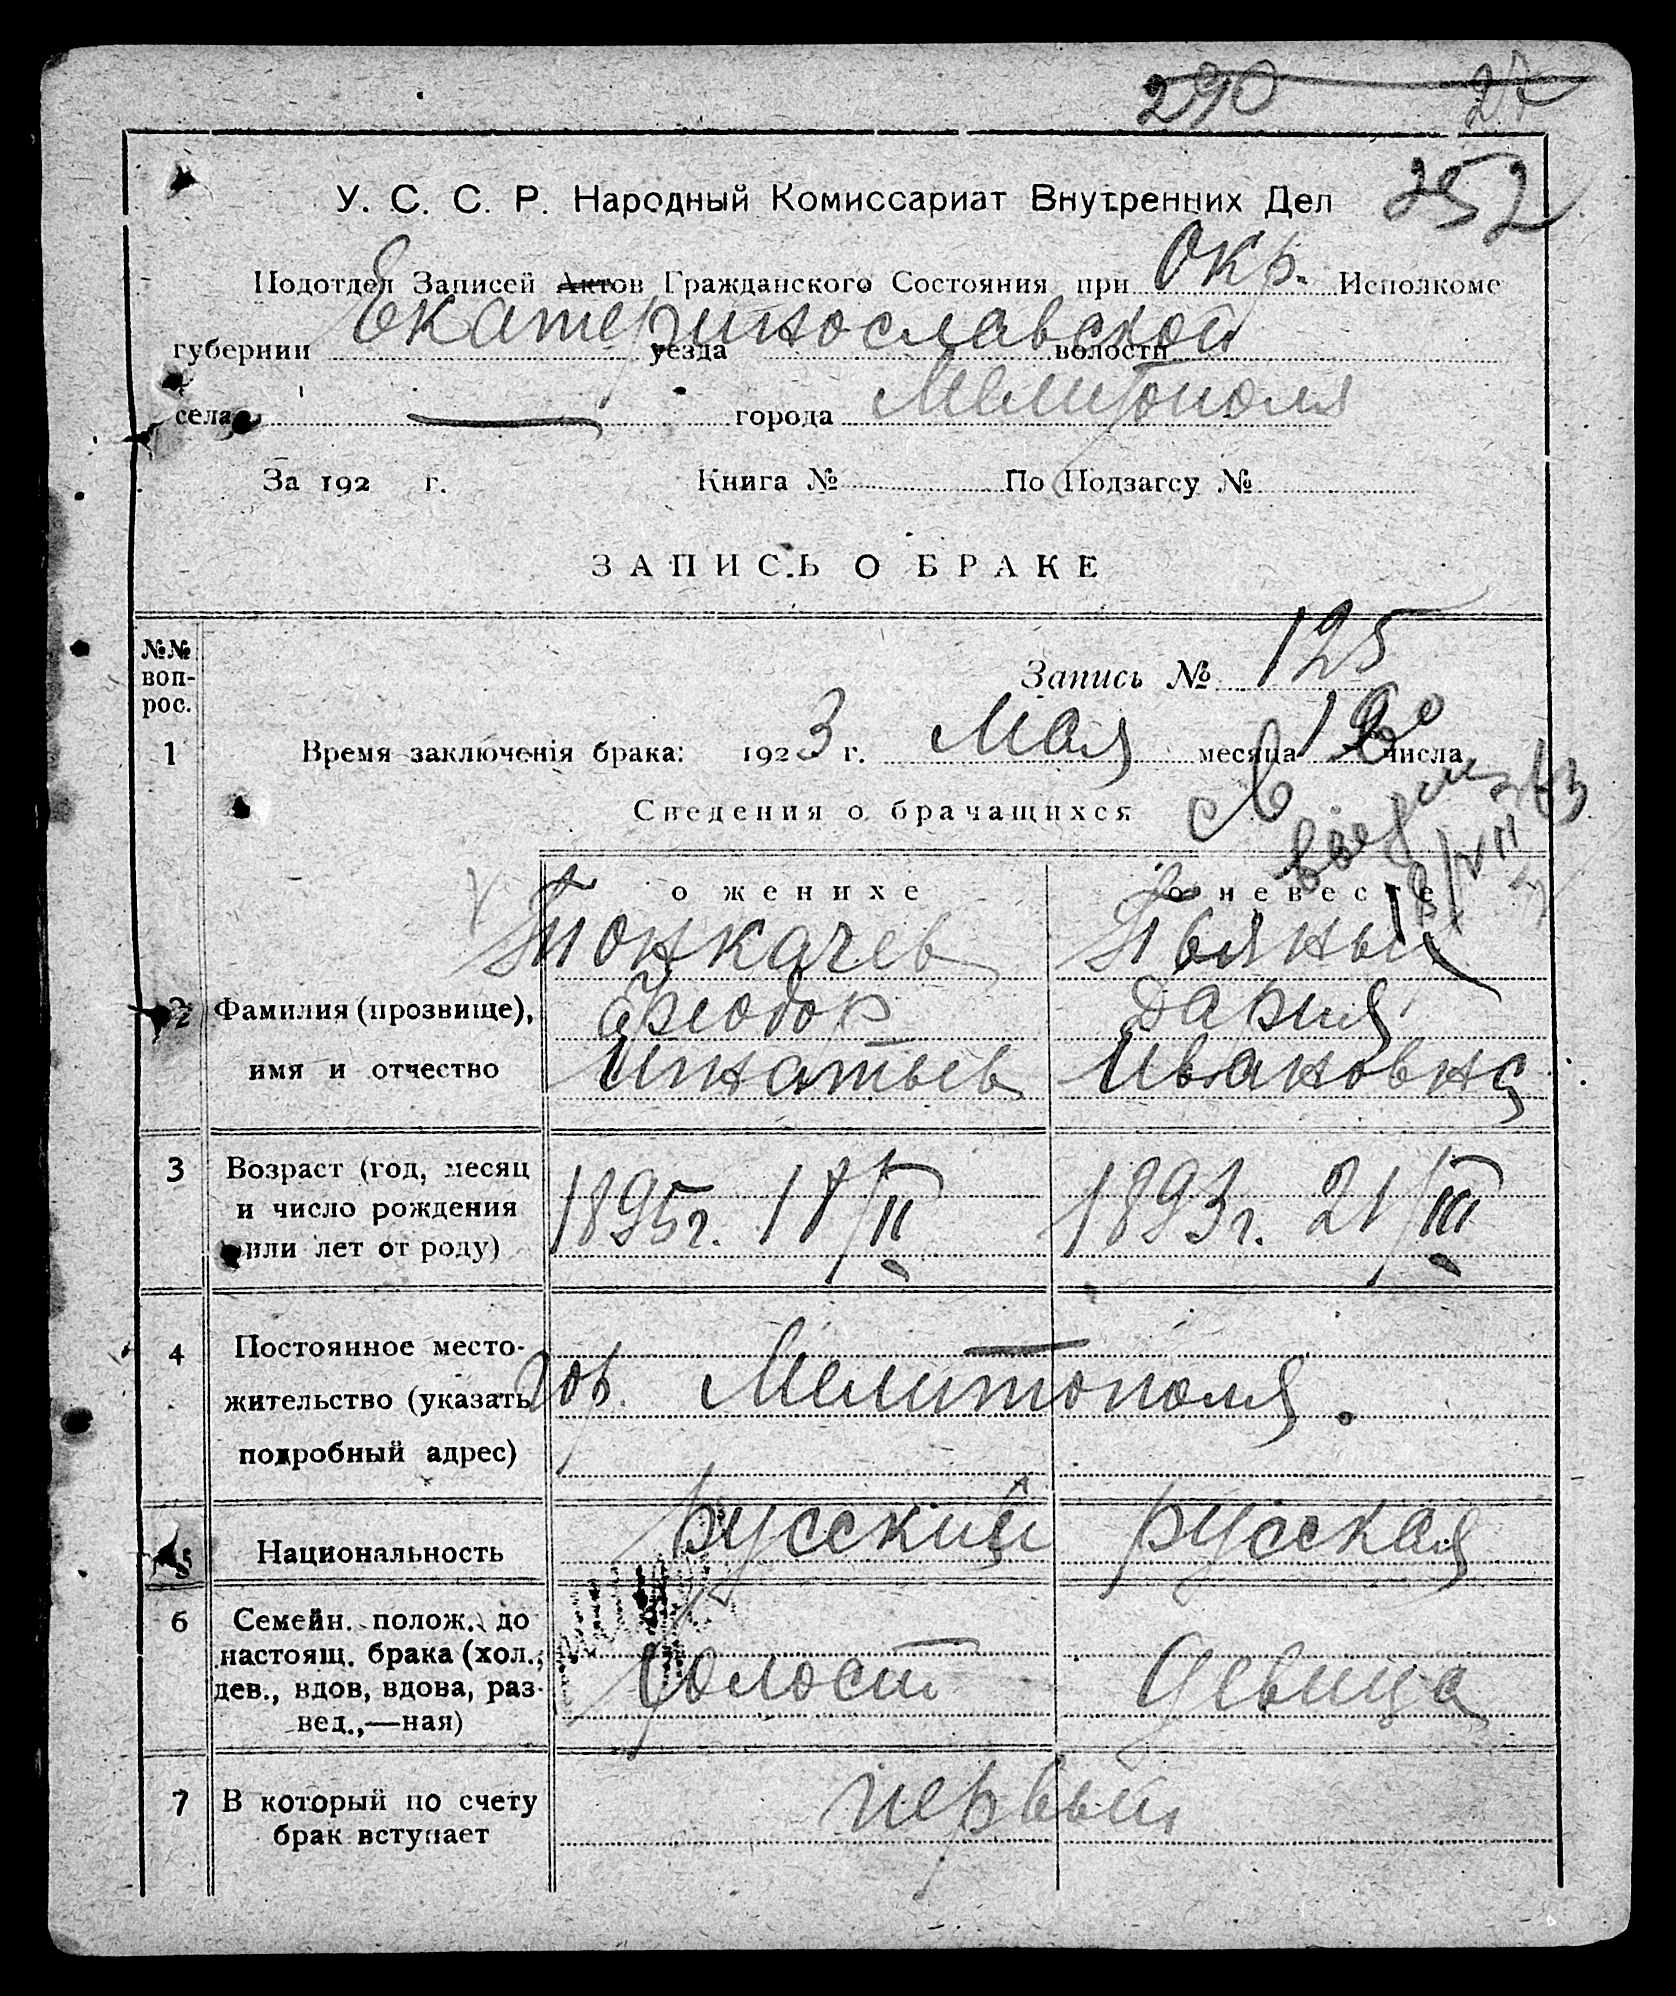 290 27
252
У. С. С. Р. Народный Комиссариат Внутренних Дел
Подотдел Записей Актов Гражданского Состояния при Окр. Исполкоме
губернии Екатеринославской уезда волости
села — города Мелитополя
За 192 г. Книга № По Подзагсу №
ЗАПИСЬ О БРАКЕ
№№ воп-
рос.
Запись № 125
1 Время заключенія брака: 1923 г. Мая месяца числа
Сведения о брачащихся
о женихе о невесте
Тонкачев Пьяных
2 Фамилия (прозвище), Феодор Дария
имя и отчество Игнатьев Ивановна
3 Возраст (год, месяц
и число рождения 1895г. 17/II 1893г. 21/III
или лет от роду)
4 Постоянное место-
жительство (указать гор. Мелитополя.
подробный адрес)
5 Национальность русский русская
6 Семейн. полож. до
настоящ. брака (хол., холост девица
дев., вдов, вдова, раз-
вед.,—ная)
7 В который по счету первый
брак вступает